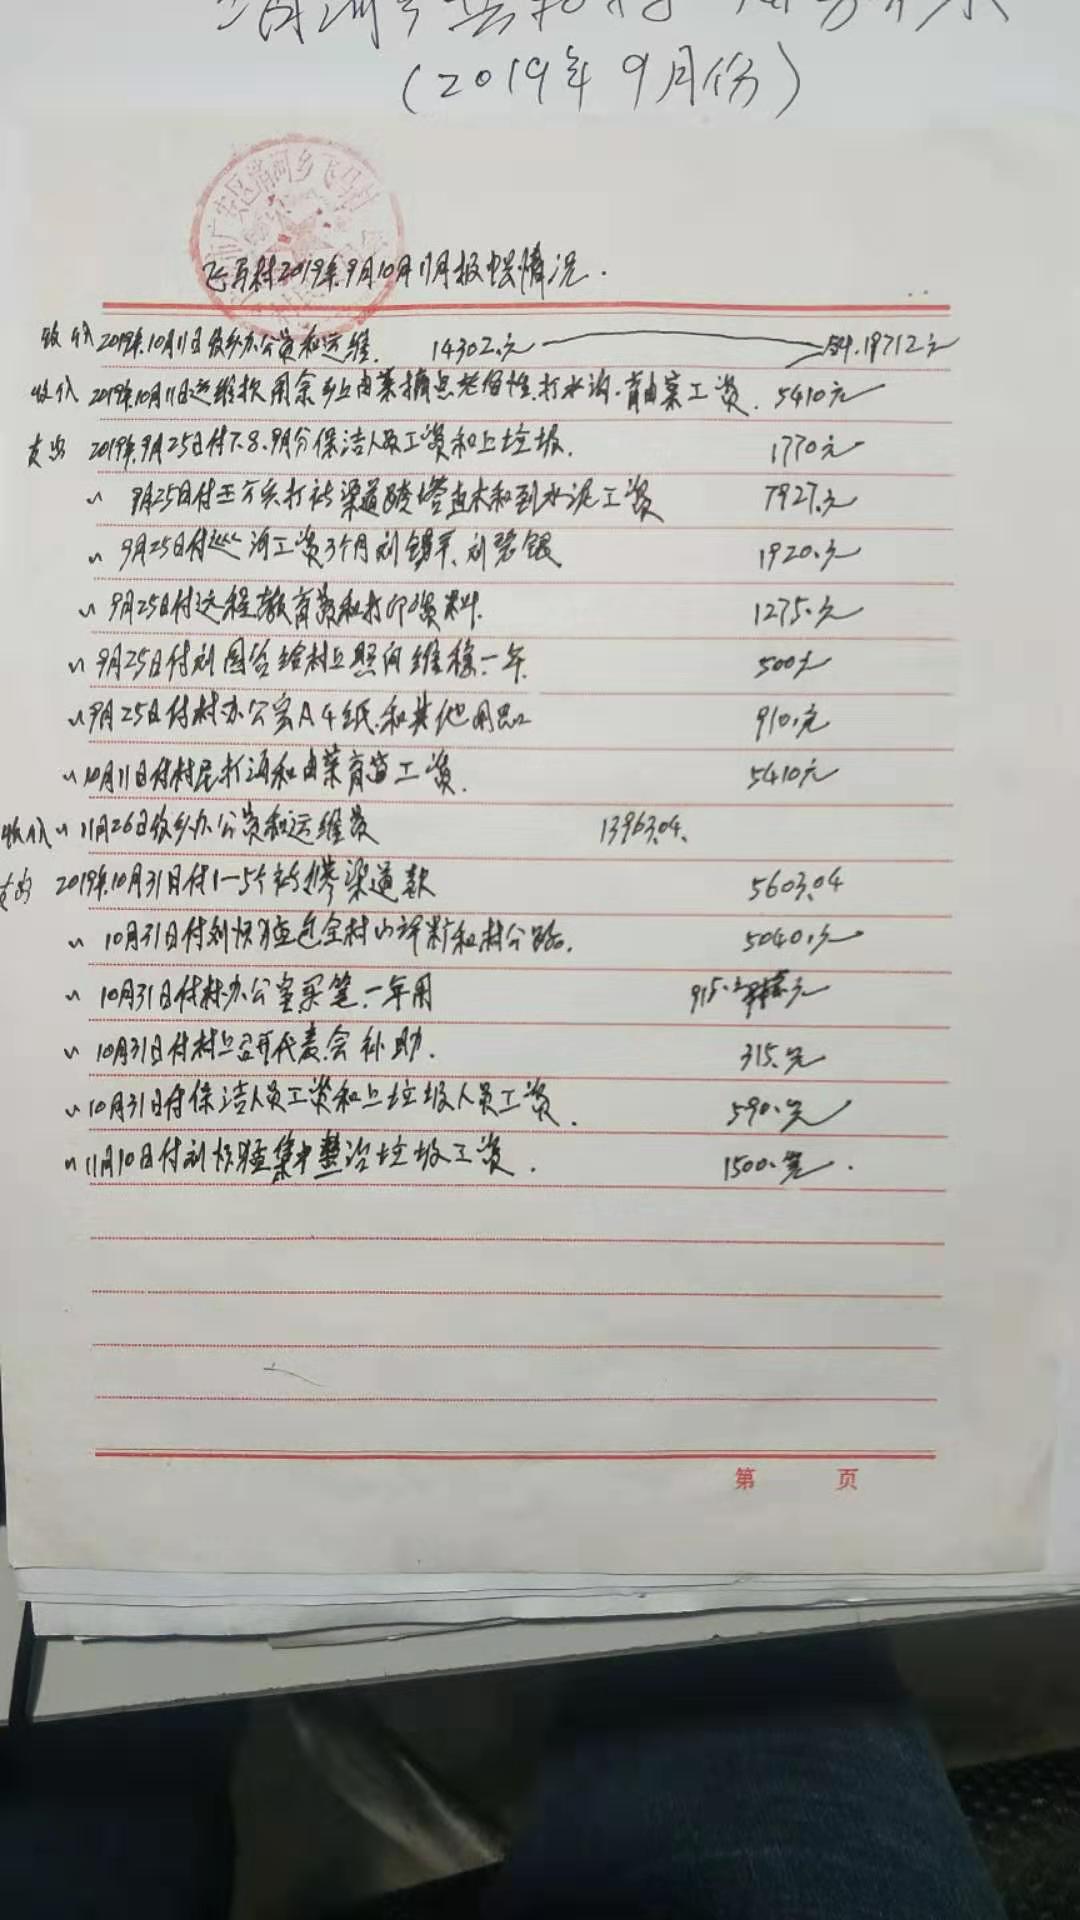 (2019年9月份)
广安区渭河乡飞马村
飞马村2019年.9月10月11月报账情况.
收入 2019年.10月11日收乡办公费和运维. 14302.元 19712元
收入 2019年10月11日运维款用余 油菜 打水沟.育油菜工资. 5410元
支出 2019年.9月25日付7.8.9月分保洁人员工资和上垃圾. 1770元
〃 9月25日付 渠道 和到水泥工资 7927.元
〃 9月25日付巡河工资3个月刘锡平、刘碧银 1920.元
〃 9月25日付远程教育费和打印资料. 1275.元
〃 9月25日付刘国 给村上照向维稳一年. 500元
〃 9月25日付村办公室A4纸.和其他用品 910.元
〃 10月11日付村民打沟和油菜育苗工资. 5410元
收入 〃 11月26日收乡办公费和运维费 13963.04.
支出 2019年.10月31日付1—5个社 渠道款 5603.04
〃 10月31日付刘 全村 和村公路. 5040.元
〃 10月31日付村办公室买笔.一年用 915.元
〃 10月31日付村上召开代表会补助. 315.元
〃 10月31日付保洁人员工资和上垃圾人员工资. 590.元
〃 11月10日付刘 集中整治垃圾工资. 1500.元.
第 页